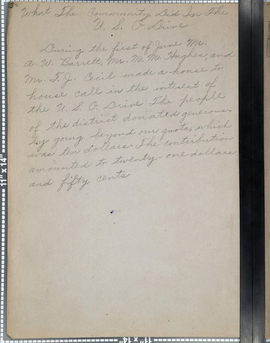 What The Community Did In The
U. S. O Drive
During the first of June Mr.
A. W. Barrett, Mr. M. M. Hughes, and
Mr. F. J. Cecil made a house to
house calls in the intrest of
the U. S. O Drive. The people
of the district donated generously
by going beyond our quota, which
was ten dollars. The contribution
amounted to twenty-one dollars
and fifty cents
11" x 14"
11" x 14"